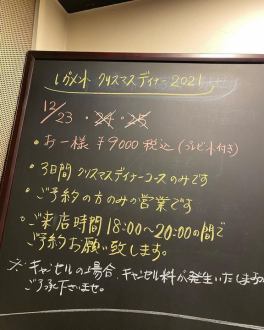 レガメント クリスマスディナー2021
12/23 ・24 ・25
・お一様 ¥9000 税込 (プレゼント付き)
・3日間 クリスマスディナーコースのみです
・ご予約の方のみの営業です
・ご来店時間18:00〜20:00の間で
ご予約お願い致します。
※キャンセルの場合、キャンセル料が発生いたします
ご了承下さいませ。